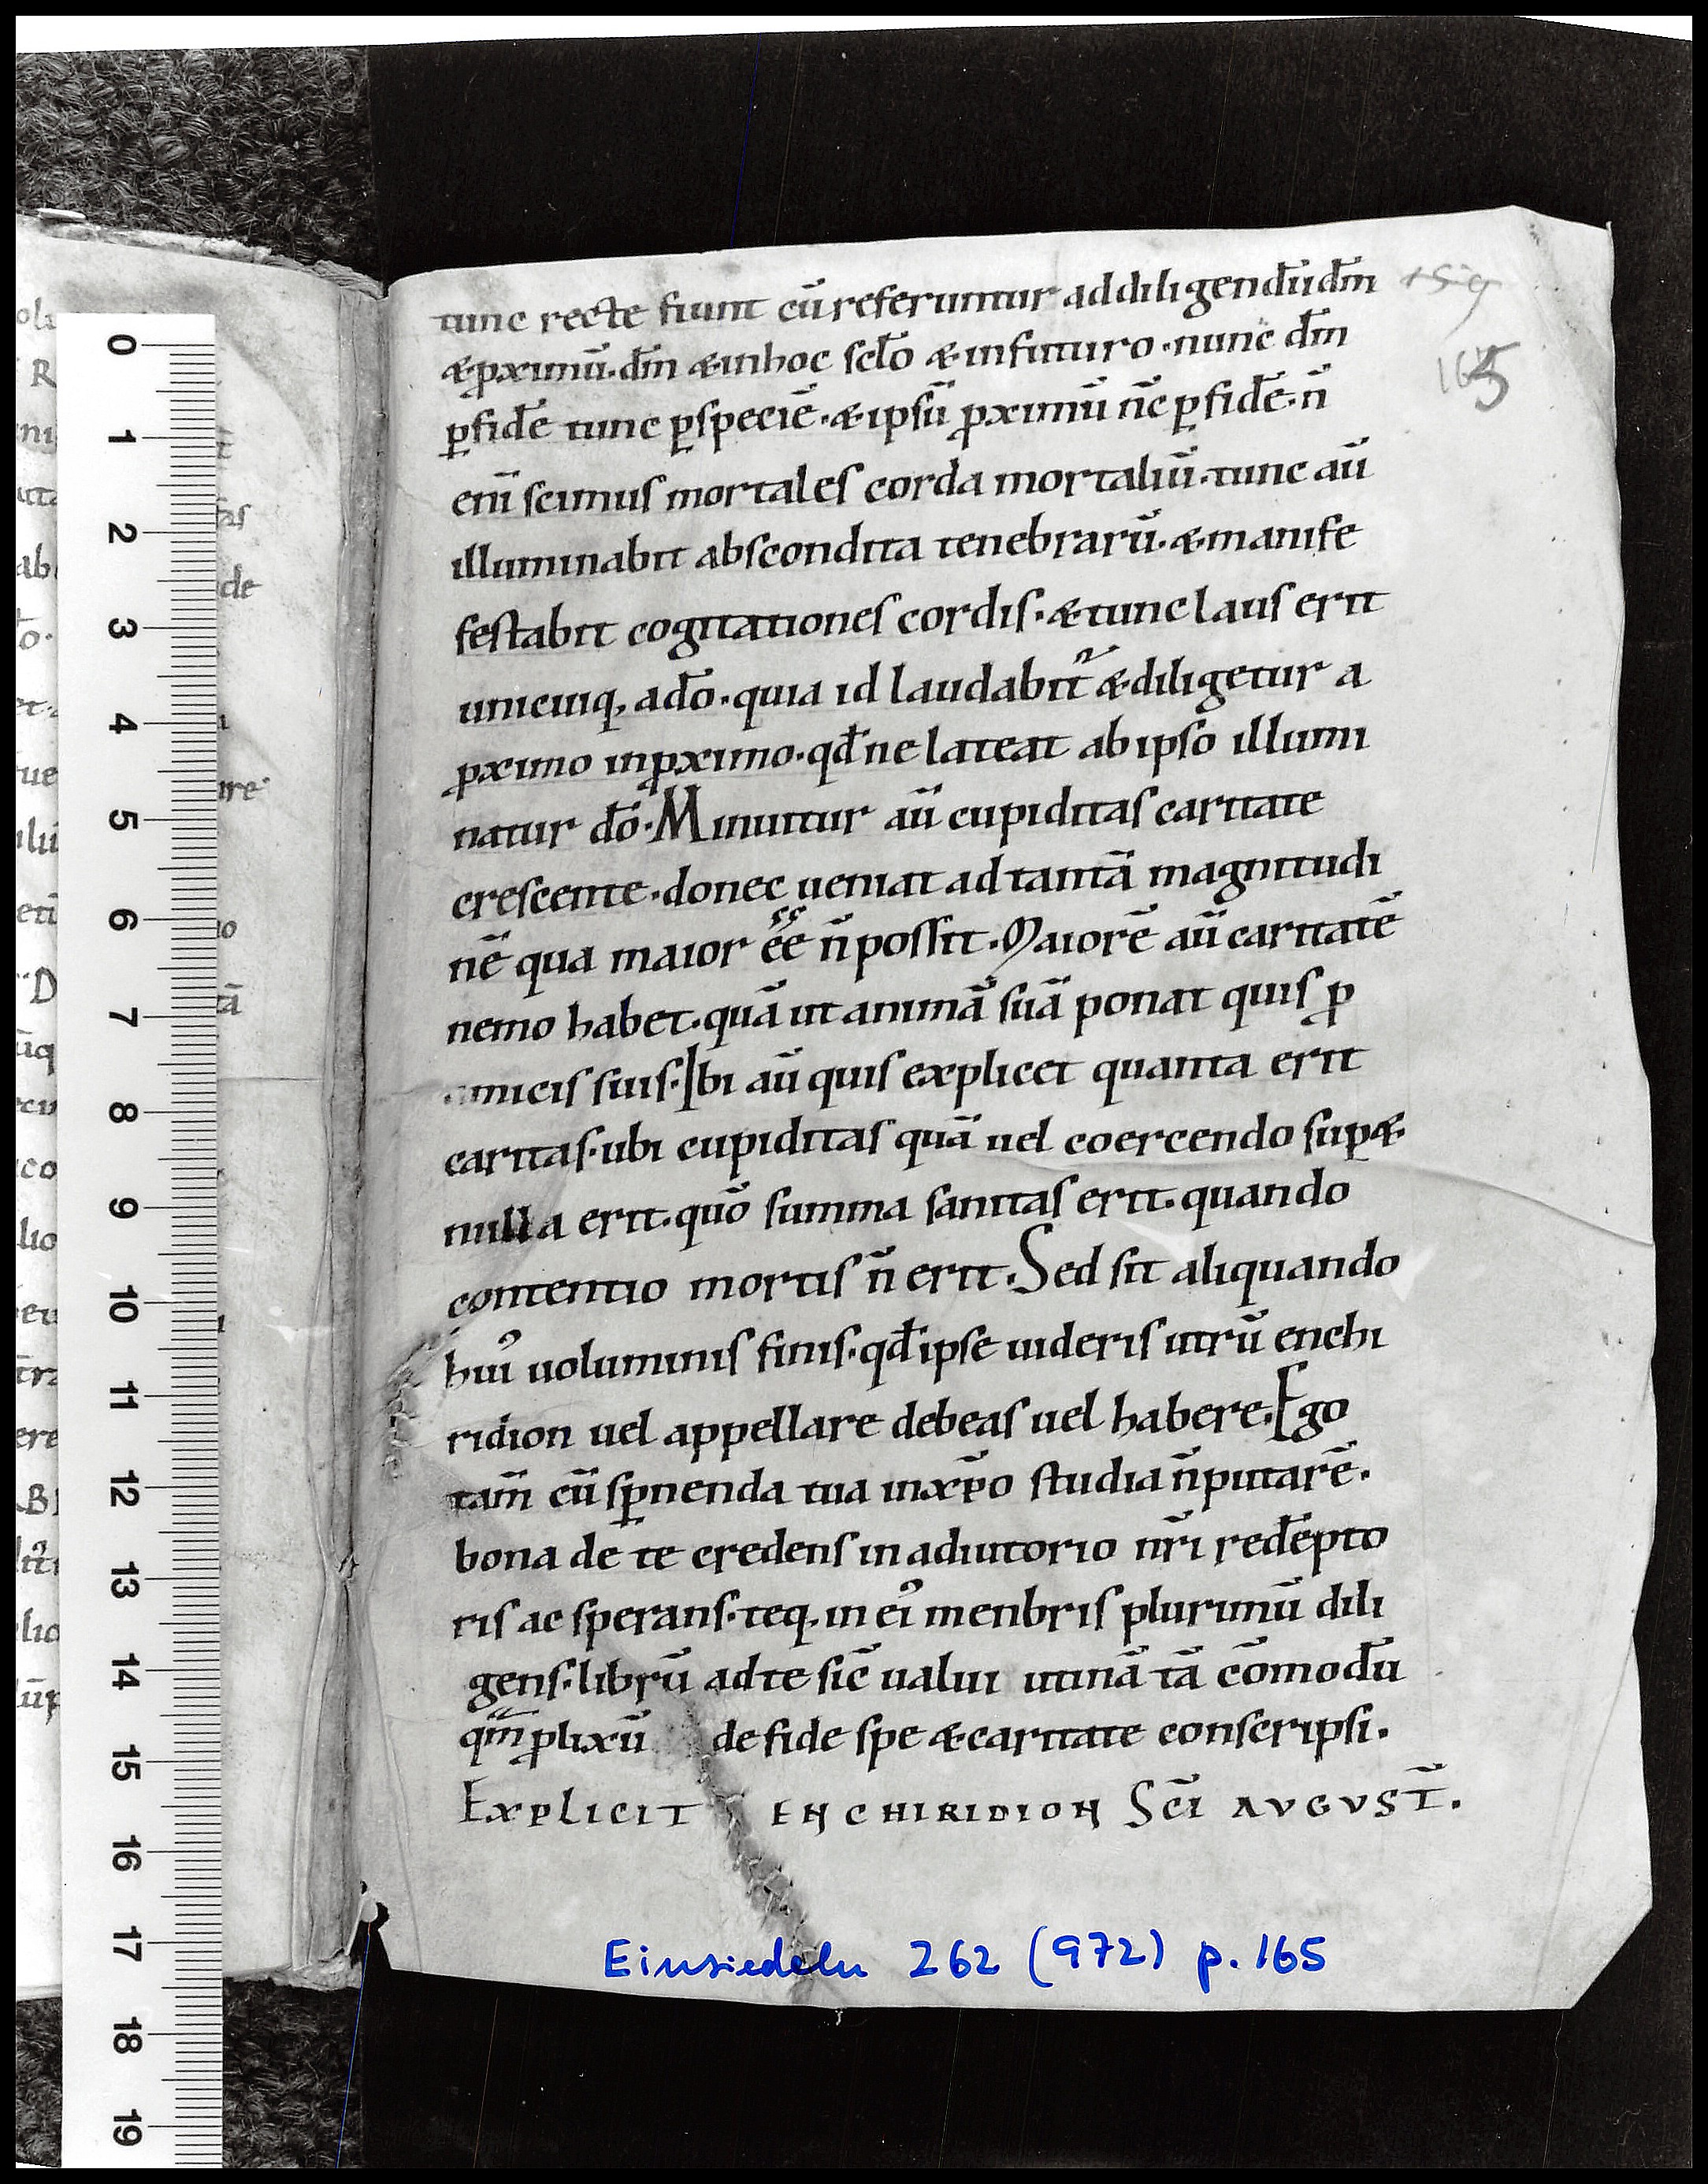 tunc recte fiunt cū referuntur ad diligendū dm̄
& ꝓximū. dm̄ & in hoc scl̄o & in futuro. nunc dm̄
ꝑ fidē tunc ꝑ speciē. & ipsū ꝓximū nc̄ ꝑ fidē. n̄
enī scimus mortales corda mortaliū. tunc aū
illuminabit abscondita tenebrarū. & manife
festabit cogitationes cordis. & tunc laus erit
unicuiq, a do̅. quia id laudabit᷑ & diligetur a
ꝓximo in ꝓximo. qd̄ ne lateat ab ipso illumi
natur do̅. Minuitur aū cupiditas caritate
crescente. donec ueniat ad tantā magnitudi
nē qua maior ēē n̄ possit. Maiorē aū caritatē
nemo habet. quā ut animā suā ponat quis ꝓ
amicis suis. Ibi aū quis explicet quanta erit
caritas. ubi cupiditas quā uel coercendo suꝑ&
nulla erit. quō summa sanitas erit. quando
contentio mortis n̄ erit. Sed sit aliquando
hui᾿ uoluminis finis. qd̄ ipse uideris utrū enchi
ridion uel appellare debeas uel habere. Ego
tam̄ cū sꝑnenda tua in xp̄o studia n̄ putarē.
bona de te credens in adiutorio nr̄i redēpto
ris ac sperans. teq, in ei᾿ menbris plurimū dili
gens. librū ad te sic̄ ualui utinā tā cōmodū
qm̄ ꝓlixū de fide spe & caritate conscripsi.
Explicit enchiridion Sc̄i Augusī.
159
165
Einsiedeln 262 (972) p. 165
0
1
2
3
4
5
6
7
8
9
10
11
12
13
14
15
16
17
18
19